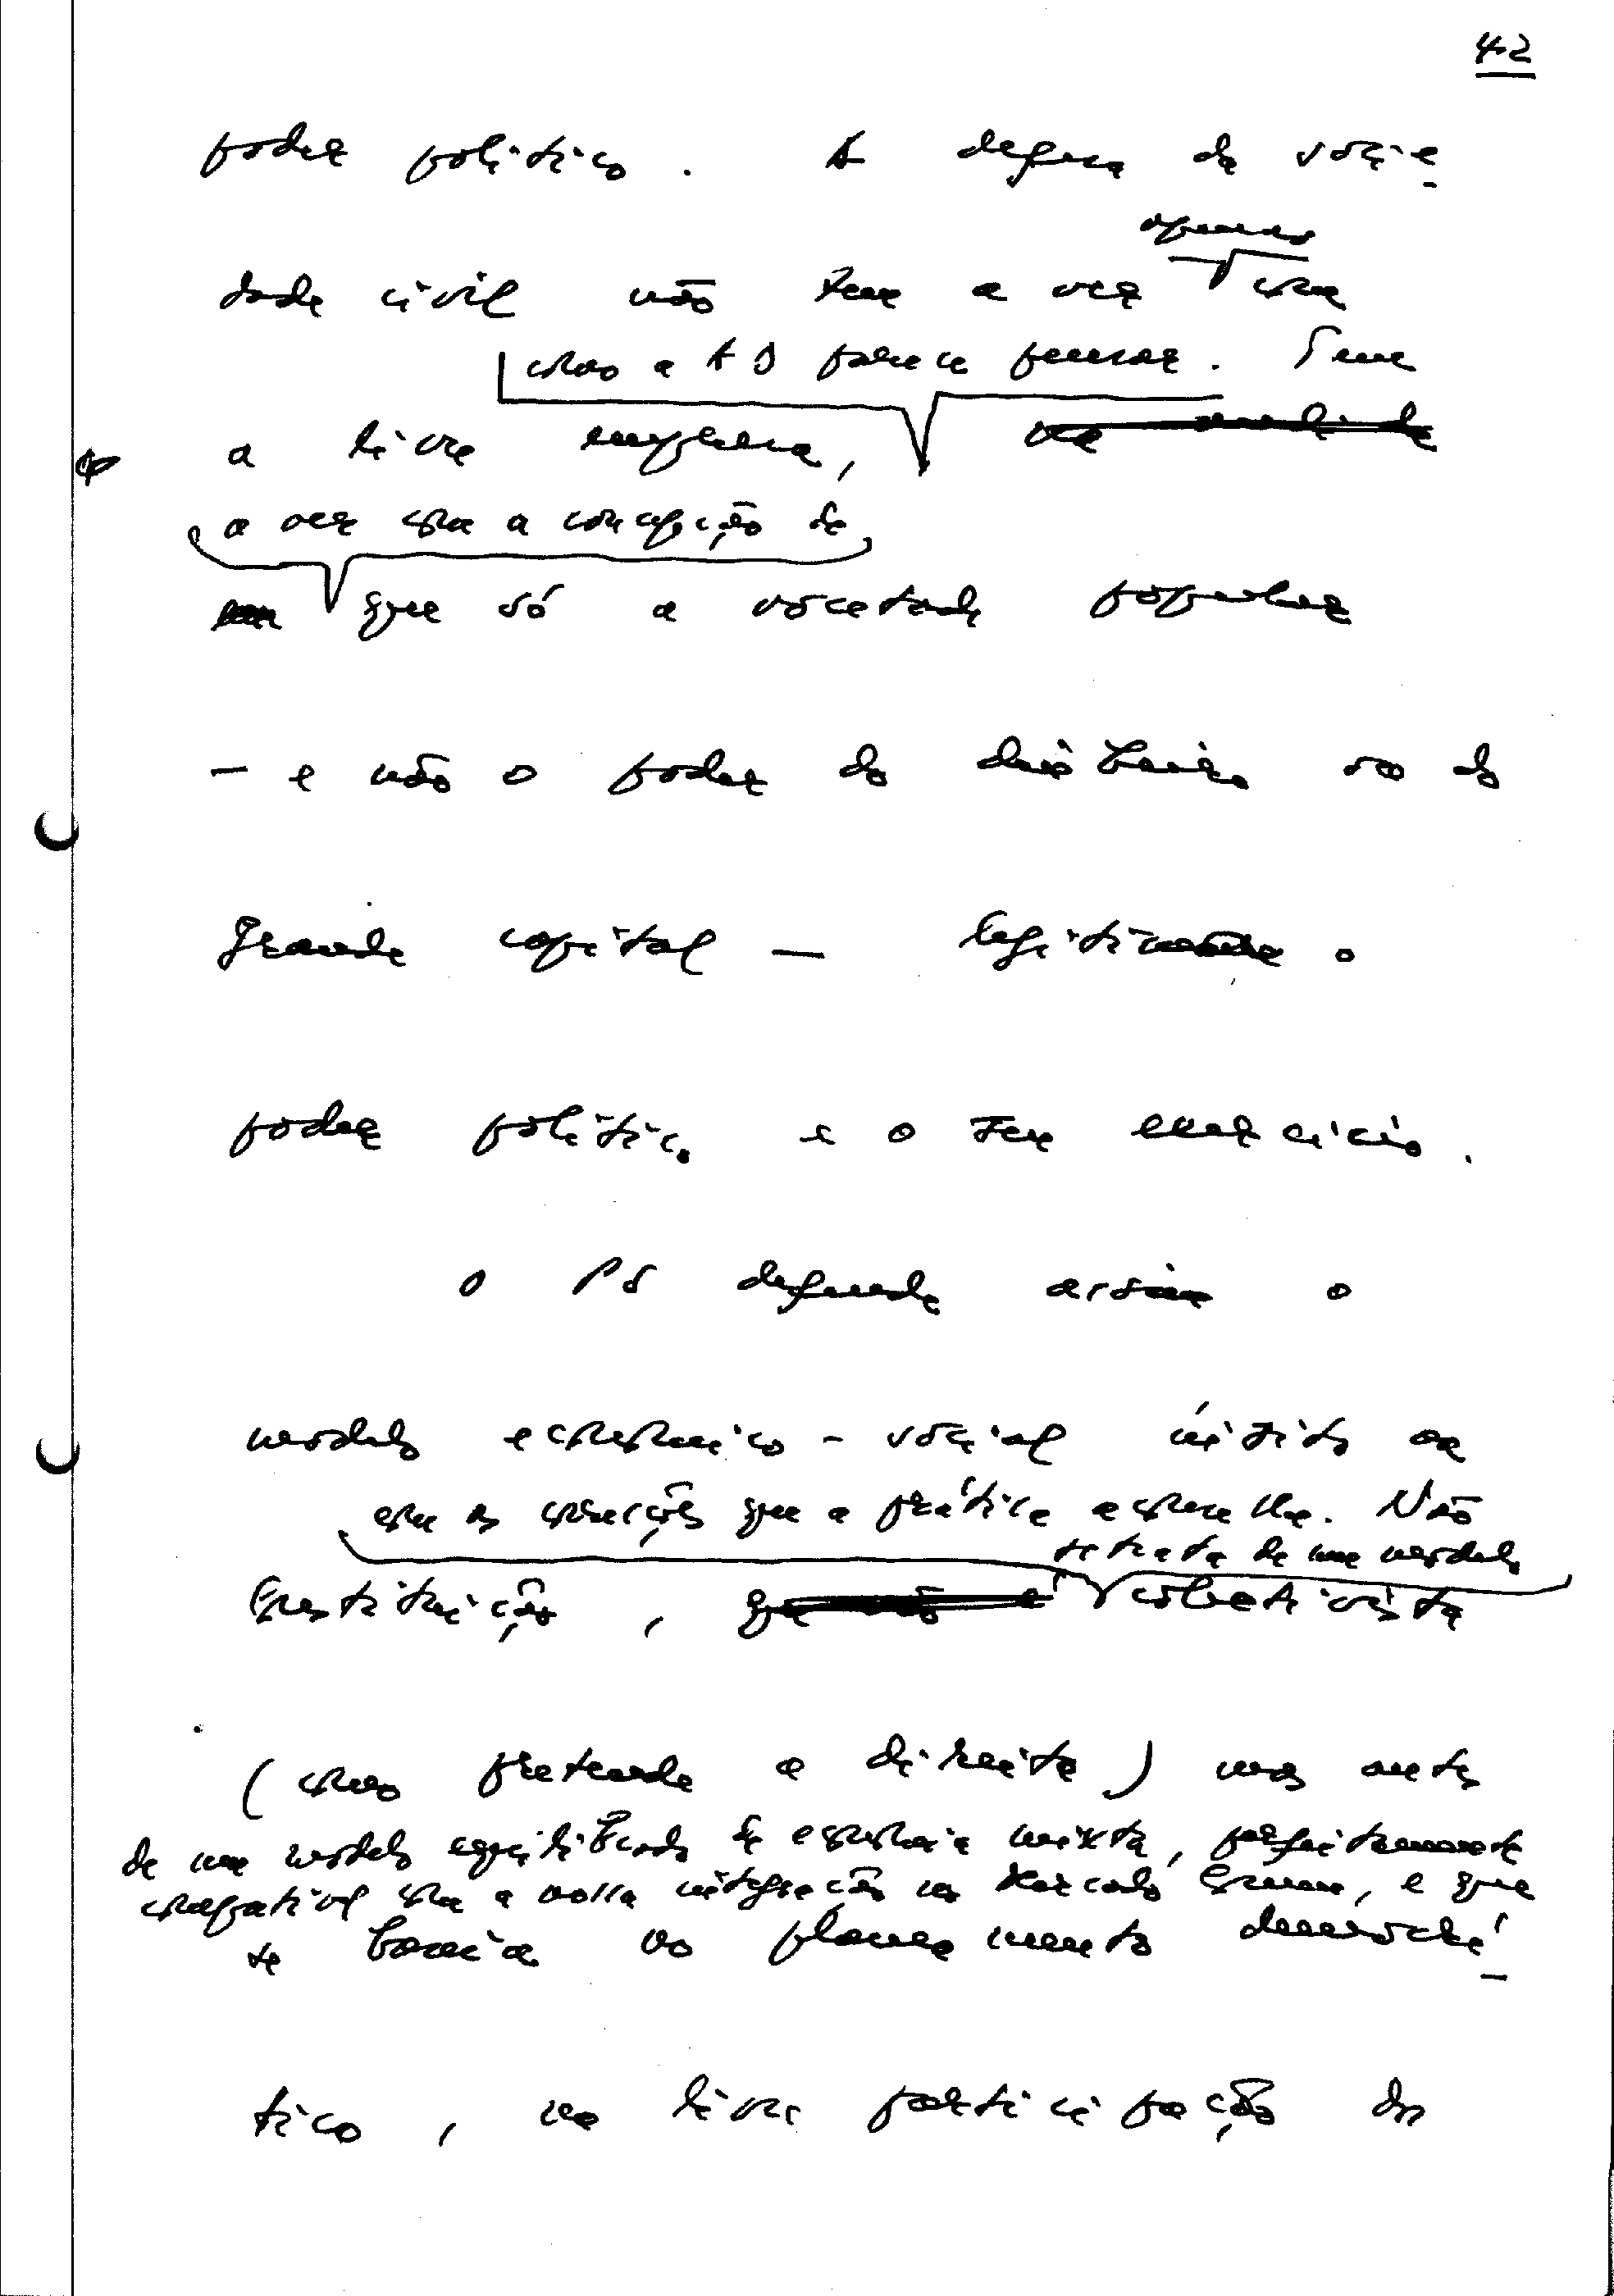 42
poder político. A defesa da socie-
apenas
dade civil não tem a ver com
como a AD parece pensar. Tem
a livre empresa, na medida
a ver com a concepção de
em que só a vontade popular
- e não o poder do dinheiro ou do
grande capital - legitima o
poder político e o seu exercício.
O PS defende assim o
modelo económico-social ínsito na
com as correcções que a prática aconselha. Não
se trata de um modelo
Constituição, que não é colectivista
(como pretende a direita) mas antes
de um modelo equilibrado de economia mixta, perfeitamente
compatível com a nossa integração no Mercado Comum, e que
se baseia no planeamento democrá-
tico, na livre participação dos